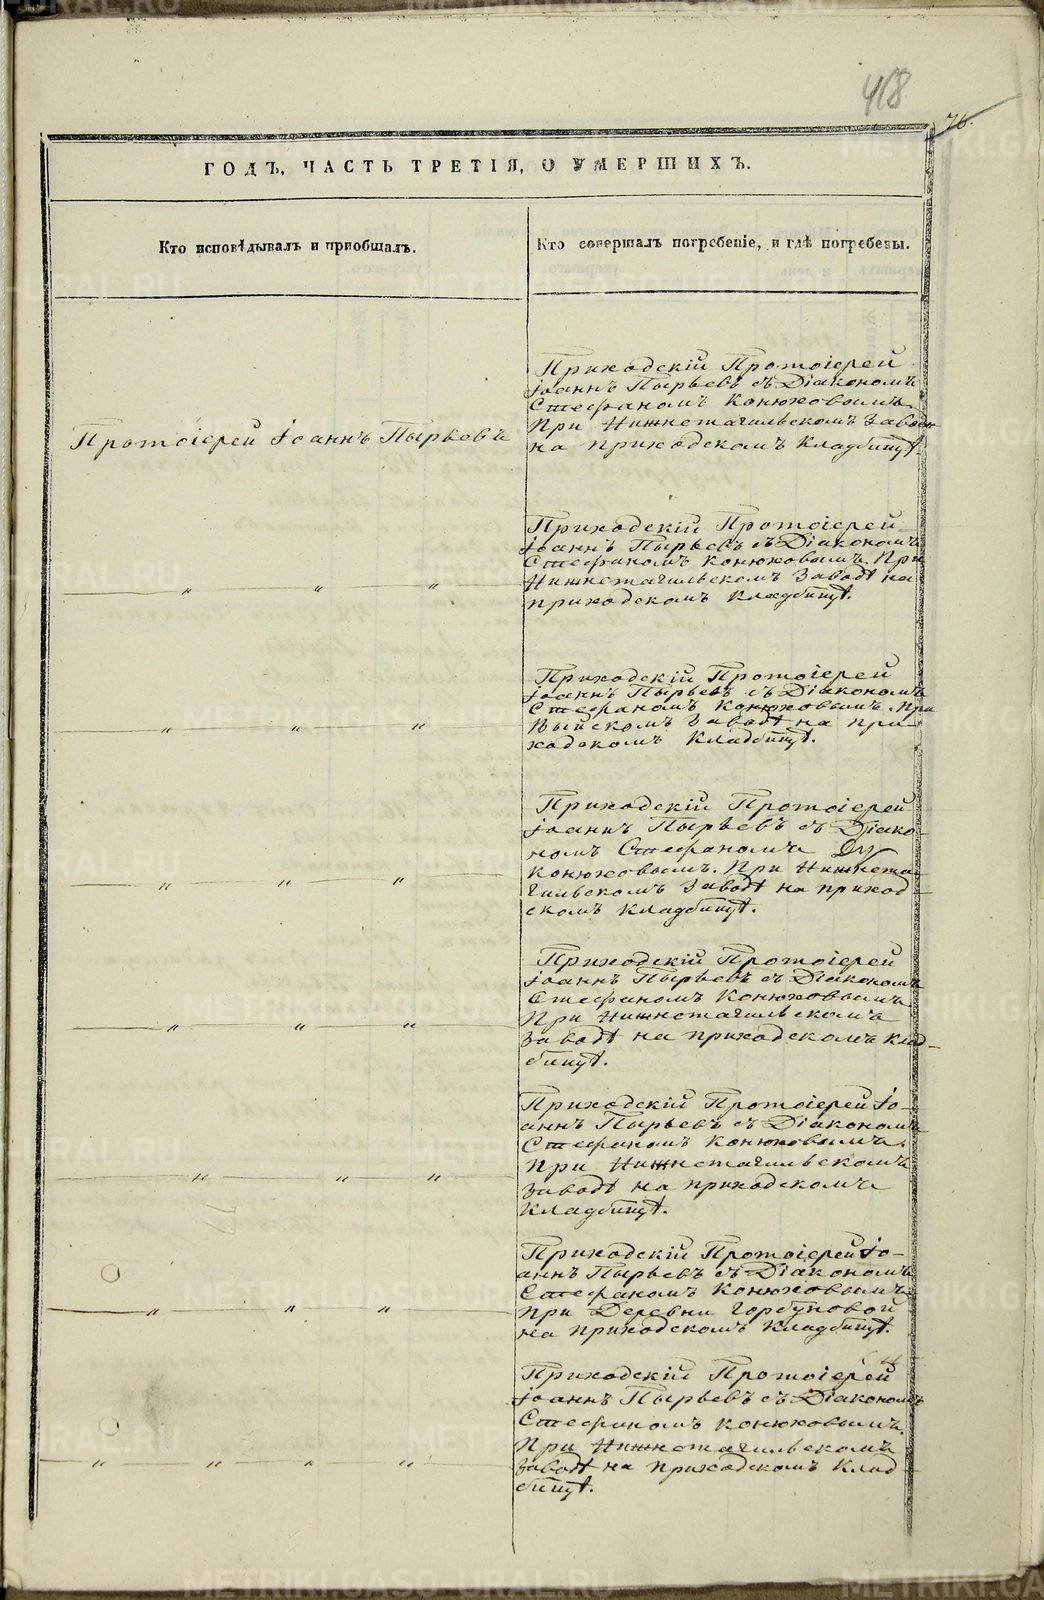 468
76.
ГОДЪ, ЧАСТЬ ТРЕТІЯ, О УМЕРШИХЪ.
Кто исповѣдывалъ и пріобщалъ.
Кто совершалъ погребеніе, и гдѣ погребены.
Протоіерей Іоаннъ Пырьевъ
Приходскій Протоіерей
Іоаннъ Пырьевъ съ Діакономъ
Стефаномъ Конюховымъ.
При Нижнетагильскомъ Заводѣ
на приходскомъ Кладбищѣ.
„ „ „
Приходскій Протоіерей
Іоаннъ Пырьевъ съ Діакономъ
Стефаномъ Конюховымъ. При
Нижнетагильскомъ Заводѣ на
приходскомъ Кладбищѣ.
„ „ „
Приходскій Протоіерей
Іоаннъ Пырьевъ съ Діакономъ
Стефаномъ Конюховымъ. При
Выйскомъ Заводѣ на при-
ходскомъ Кладбищѣ.
„ „ „
Приходскій Протоіерей
Іоаннъ Пырьевъ съ Діако-
номъ Стефаномъ
Конюховымъ. При Нижнета-
гильскомъ Заводѣ на приход-
скомъ Кладбищѣ.
„ „ „
Приходскій Протоіерей
Іоаннъ Пырьевъ съ Діакономъ
Стефаномъ Конюховымъ
При Нижнетагильскомъ
Заводѣ на приходскомъ Клад-
бищѣ.
„ „ „
Приходскій Протоіерей Іо-
аннъ Пырьевъ съ Діакономъ
Стефаномъ Конюховымъ.
При Нижнетагильскомъ
Заводѣ на приходскомъ
Кладбищѣ.
„ „ „
Приходскій Протоіерей Іо-
аннъ Пырьевъ съ Діакономъ
Стефаномъ Конюховымъ
При Деревни Горбуновой
на приходскомъ Кладбищѣ.
„ „ „ „
Приходскій Протоіерей
Іоаннъ Пырьевъ съ Діакономъ
Стефаномъ Конюховымъ.
При Нижнетагильскомъ
Заводѣ на приходскомъ Клад-
бищѣ.
METRIKI.GASO-URAL.RU